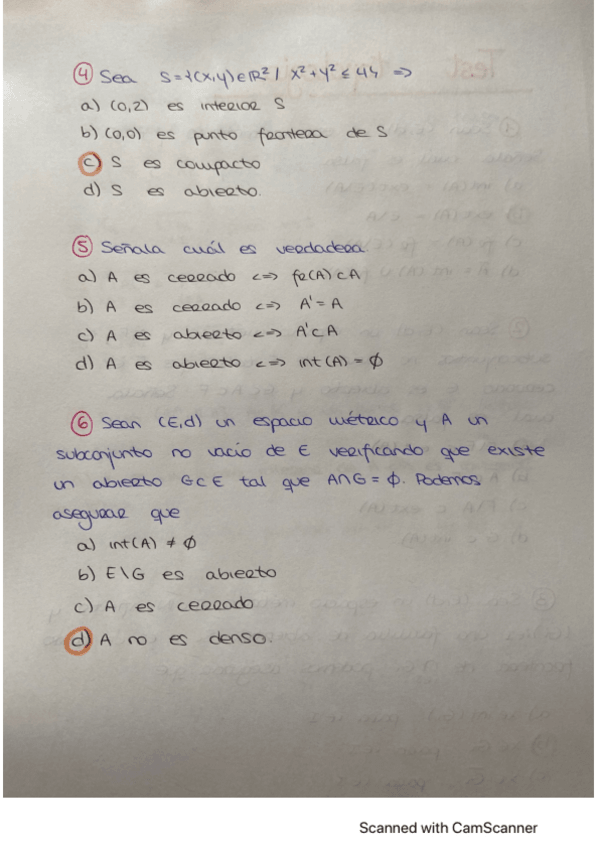 ④ Sea S={(x,y)∈ℝ² / x²+y² ≤ 4} =>
a) (0,2) es interior S
b) (0,0) es punto frontera de S
c) S es compacto
d) S es abierto.
⑤ Señala cuál es verdadera
a) A es cerrado <=> fr(A)⊂A
b) A es cerrado <=> A'=A
c) A es abierto <=> A'⊂A
d) A es abierto <=> int(A)=∅
⑥ Sean (E,d) un espacio métrico y A un
subconjunto no vacío de E verificando que existe
un abierto G⊂E tal que A∩G=∅. Podemos
asegurar que
a) int(A) ≠ ∅
b) E\G es abierto
c) A es cerrado
d) A no es denso.
Scanned with CamScanner